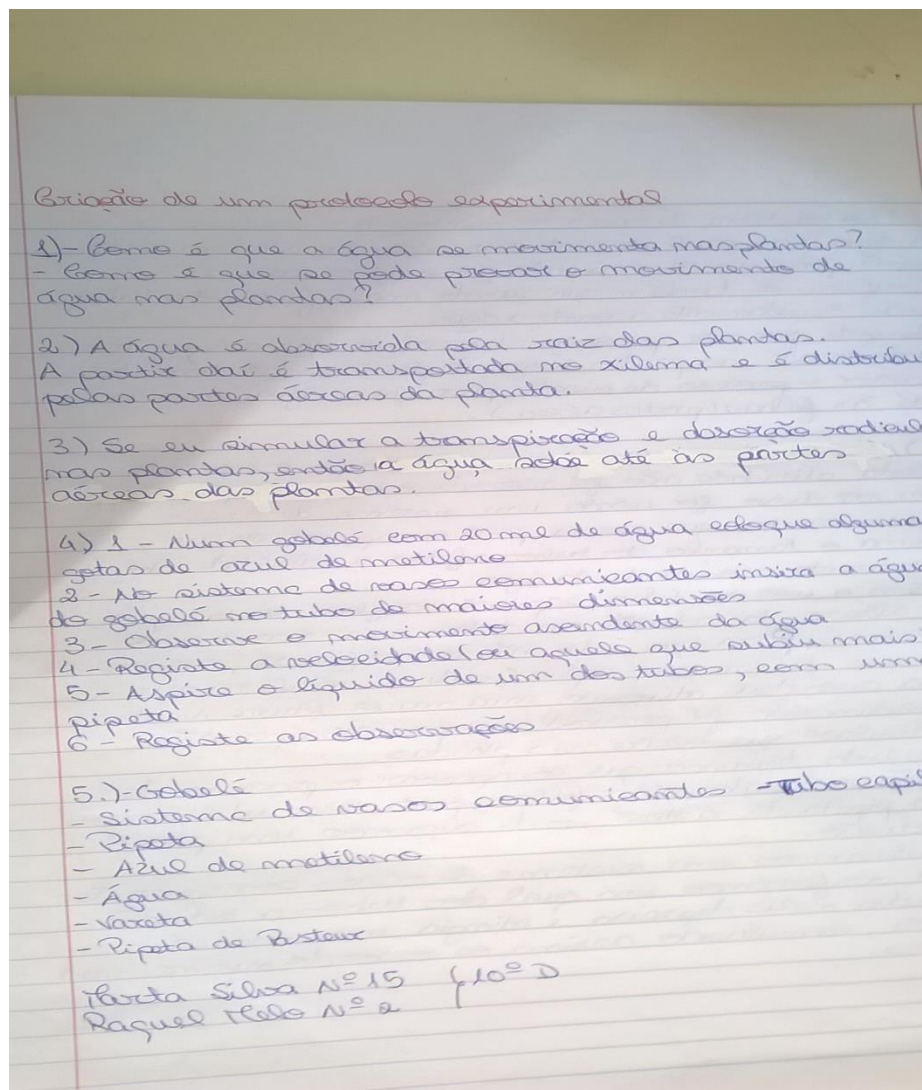 Criação de um protocolo experimental
1)- Como é que a água se movimenta nas plantas?
- Como é que se pode provar o movimento de
água nas plantas?
2) A água é absorvida pela raiz das plantas.
A partir daí é transportada no xilema e é distribu
pelas partes áereas da planta.
3) Se eu simular a transpiração e absorção radicul
nas plantas, então a água sobe até às partes
aéreas das plantas.
4) 1 - Num gobelé com 20 ml de água coloque alguma
gotas de azul de metileno
2 - No sistema de vasos comunicantes insira a água
do gobelé no tubo de maiores dimensões
3 - Observe o movimento asendente da água
4 - Registe a velocidade (ou aquele que subiu mais
5 - Aspire o líquido de um dos tubos, com um
pipeta
6 - Registe as observações
5.)- Gobelé
- Sistema de vasos comunicantes - Tubo capil
- Pipeta
- Azul de metileno
- Água
- Vareta
- Pipeta de Pasteur
Marta Silva Nº 15 { 10º D
Raquel Melo Nº 2